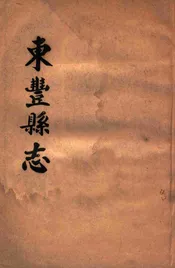 東豐縣志